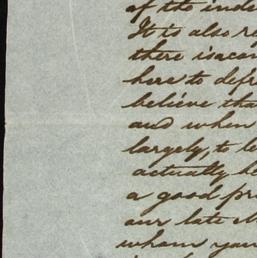 of the inde
It is also re
there is a con
here to defr
believe tha
and when
largely, to le
actually be
a good pr
our late M
whom you